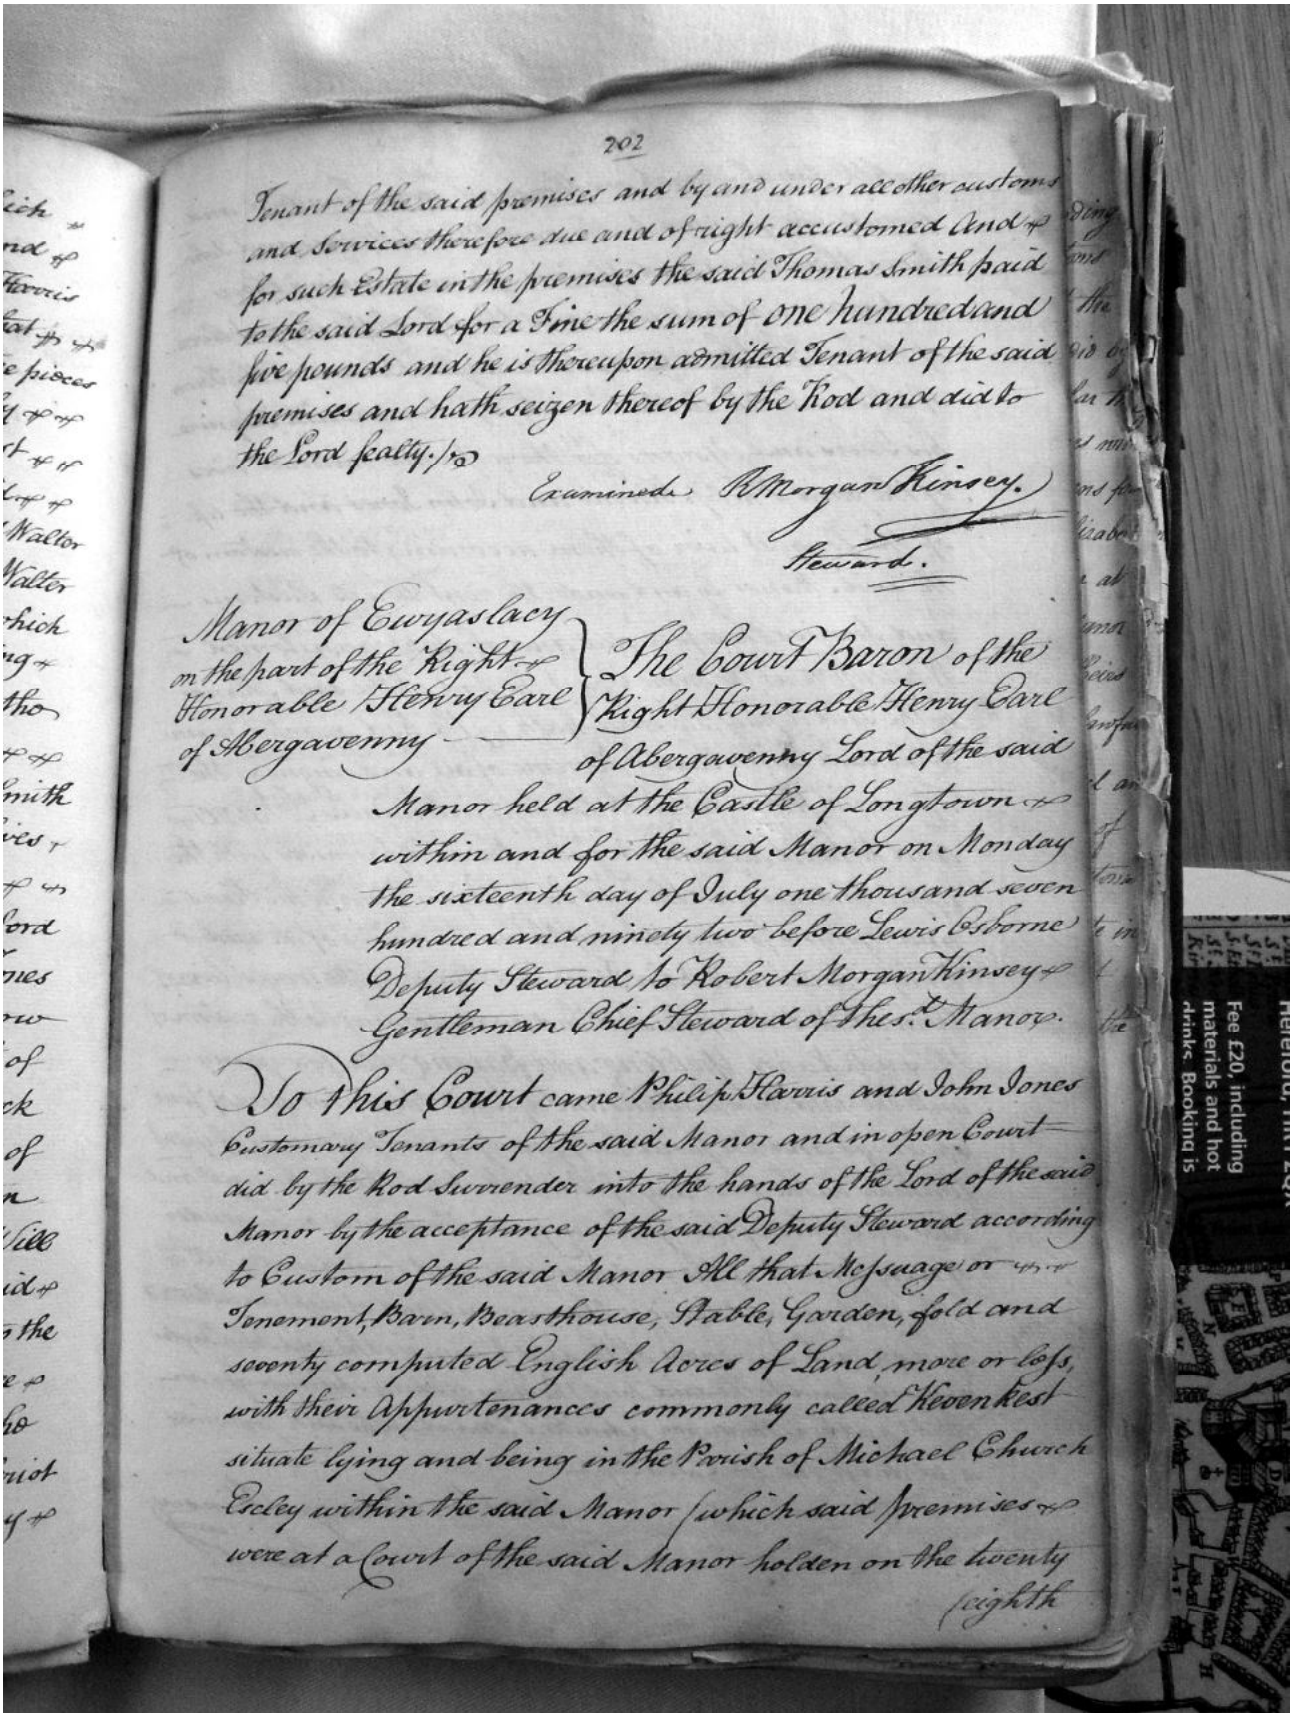 202
Tenant of the said premises and by and under all other customs
and Services therefore due and of right accustomed And
for such Estate in the premises the said Thomas Smith paid
to the said Lord for a Fine the sum of one hundred and
five pounds and he is thereupon admitted Tenant of the said
premises and hath seizen thereof by the Rod and did to
the Lord fealty.
Examined R Morgan Kinsey.
Steward.
Manor of Ewyaslacy
on the part of the Right
Honorable Henry Earl
of Abergavenny
The Court Baron of the
Right Honorable Henry Earl
of Abergavenny Lord of the said
Manor held at the Castle of Longtown
within and for the said Manor on Monday
the sixteenth day of July one thousand seven
hundred and ninety two before Lewis Osborne
Deputy Steward to Robert Morgan Kinsey
Gentleman Chief Steward of the s.d Manor.
To this Court came Philip Harris and John Jones
Customary Tenants of the said Manor and in open Court
did by the Rod Surrender into the hands of the Lord of the said
Manor by the acceptance of the said Deputy Steward according
to Custom of the said Manor All that Meſsuage or
Tenement, Barn, Beasthouse, Stable, Garden, fold and
seventy computed English Acres of Land, more or leſs,
with their Appurtenances commonly called Keven kest
situate lying and being in the Parish of Michael Church
Escley within the said Manor (which said premises
were at a Court of the said Manor holden on the twenty
(eighth
Harris
pieces
Walter
Walter
which
Smith
of
of
the
Fee £20, including
materials and hot
drinks. Booking is